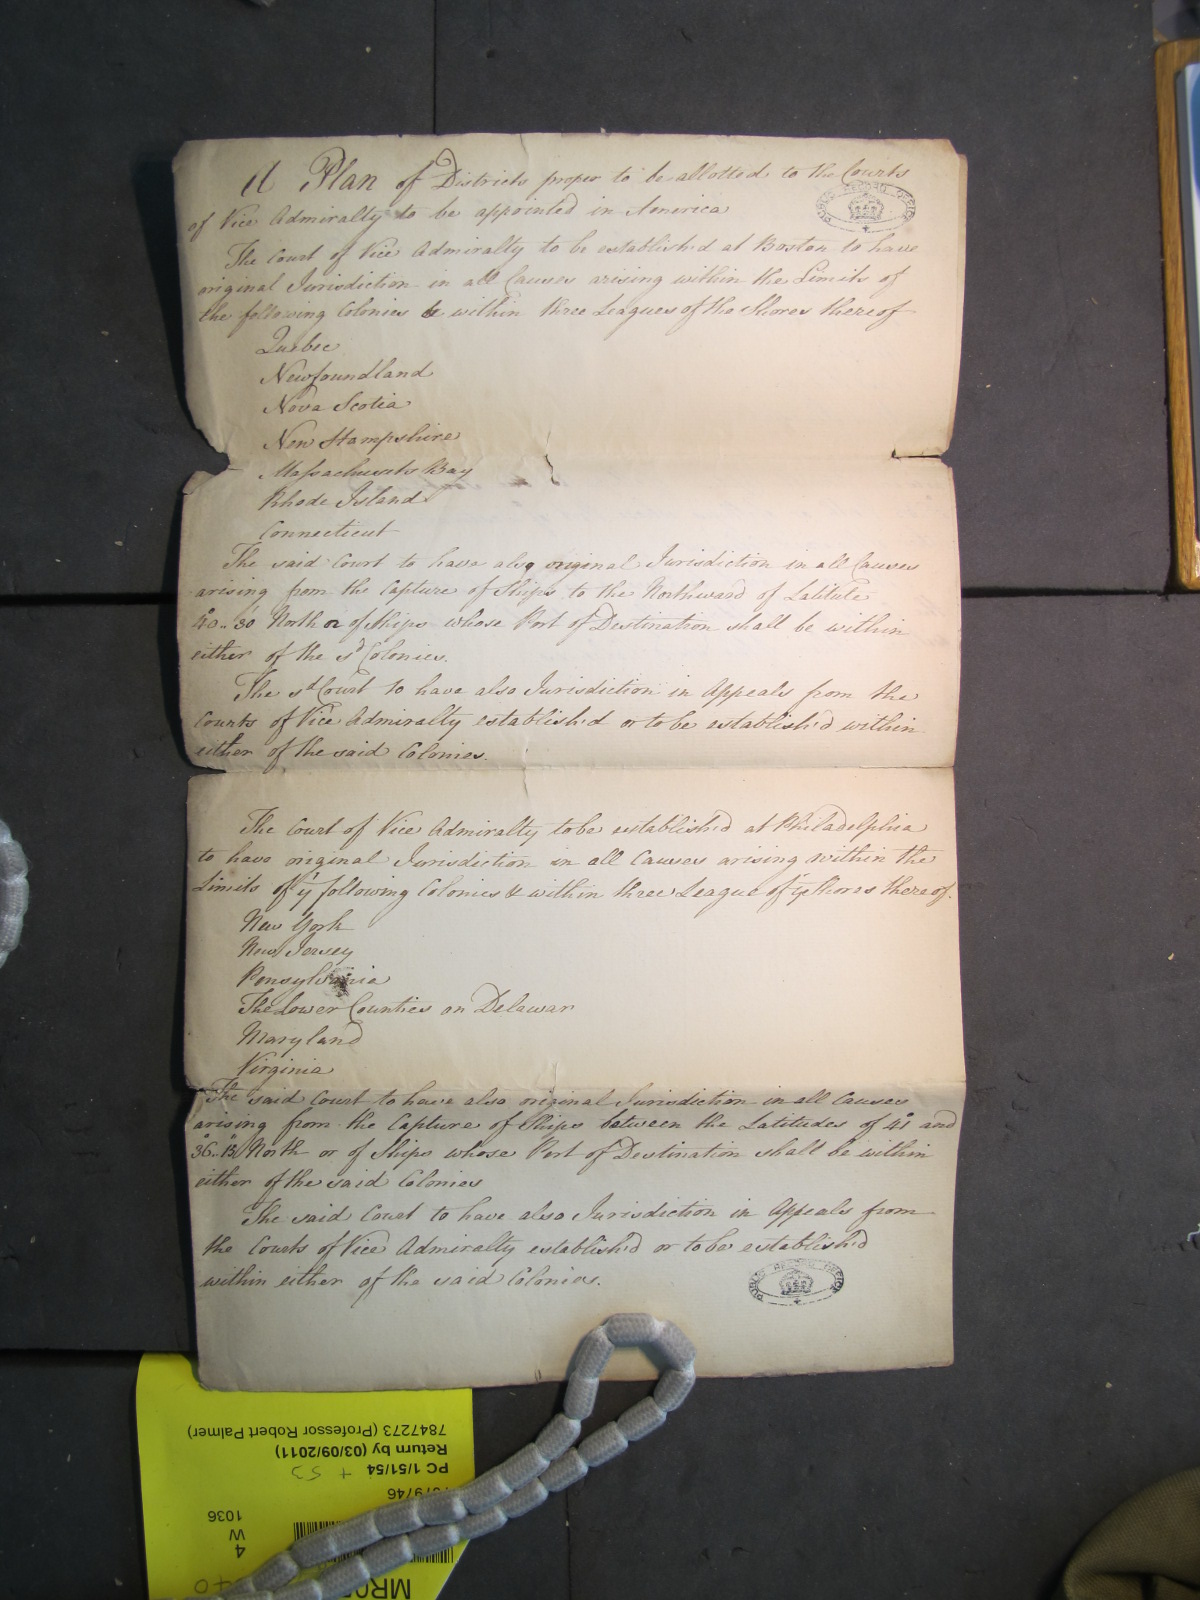 A Plan of Districts proper to be allotted to the Courts
of Vice Admiralty to be appointed in America
The Court of Vice Admiralty to be establish'd at Boston to have
original Jurisdiction in all Causes arising within the Limits of
the following Colonies & within three Leagues of the Shores thereof
Quebec
Newfoundland
Nova Scotia
New Hampshire
Massachusets Bay
Rhode Island
Connecticut
The said Court to have also original Jurisdiction in all Causes
arising from the Capture of Ships to the Northward of Latitute
North or of Ships whose Port of Destination shall be within
either of the sd Colonies.
The sd Court to have also Jurisdiction in Appeals from the
Courts of Vice Admiralty establish'd or to be establish'd within
either of the said Colonies.
The Court of Vice Admiralty to be establish'd at Philadelphia
to have original Jurisdiction in all Causes arising within the
Limits of ye following Colonies & within three League of ye Shores thereof.
New York
New Jersey
Pensylvania
The Lower Counties on Delawar
Maryland
Virginia
The said Court to have also original Jurisdiction in all Causes
arising from the Capture of Ships between the Latitudes of 41° and
North or of Ships whose Port of Destination shall be within
either of the said Colonies
The said Court to have also Jurisdiction in Appeals from
the Courts of Vice Admiralty establish'd or to be establish'd
within either of the said Colonies.
PUBLIC RECORD OFFICE
PUBLIC RECORD OFFICE
7847273 (Professor Robert Palmer)
Return by (03/09/2011)
PC 1/51/54 + 53
1036
W
4